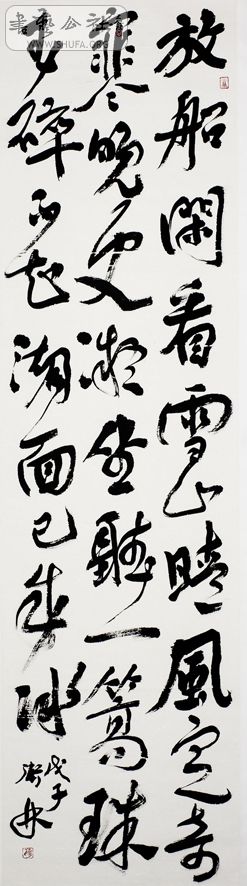 書藝公社
WWW.SHUFA.ORG
放船閑看雪山晴風定奇
寒晚更凝坐聽一篙珠
玉碎不知湖面已成冰
戊子